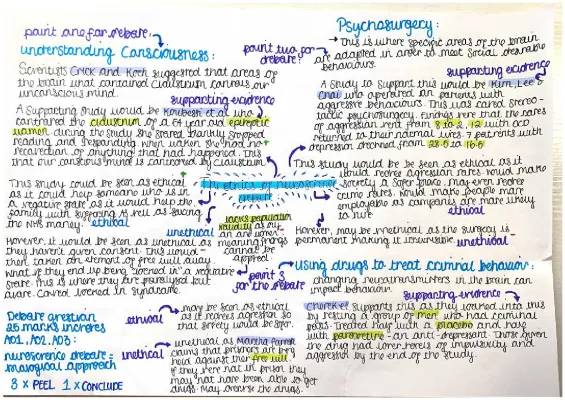 point one for debate
understanding Consciousness:
Scientists Crick and Koch suggested that areas of
the brain that contained claustrum controls our
unconscious mind.
supporting evidence
A Supporting study would be Koubeissi et al who
controlled the claustrum of a 54 year old epileptic
women during the study she stared blankly stopped
reading and responding. when woken she had no
recollection of anything that had happened. This
that our conscious mind is contained by claustrum
This study could be seen as ethical
as it could help someone who is in
a negative state as it would help the
family with suffering as well as saving
the NHS money. ethical
unethical
lacks population
validity as only
on one women
meaning findings
cannot be
applied
However it would be seen as unethical as
they haven't given consent. This would
that taken an element of free will away
what if they end up being "locked in" a vegetative
state. This is where they are paralysed but
aware. Called locked in syndrome.
The ethics of neuroscience
debate
Psychosurgery:
point two for
debate
→ This is where specific areas of the brain
are adapted in order to meet social desirable
behaviours.
supporting evidence
A study to support this would be Kim, Lee &
Choi who operated on patients with
aggressive behaviours. This was called stereo-
tactic psychosurgery. findings were that the rates
of aggression went from 8 to 2, 12 which also
returned to their normal lives. 7 patients with
depression declined from 28.5 to 16.5
This study would be seen as ethical as it
would reduce aggression rates would make
society a safer place. may even reduce
crime rates would make people more
employable as companies are more likely
to hire ethical
However, may be unethical as the surgery is
permanent making it irreversible unethical
point 3
for the debate
using drugs to treat criminal behaviour:
changing neurotransmitters in the brain can
impact behaviour
supporting evidence
Cherek et al supports this as they looked into this
by testing a group of men who had criminal
pasts. Treated half with a placebo and half
with paroxetine - an anti-depressant. Those given
the drug had lower levels of impulsivity and
aggression by the end of the study.
ethical
may be seen as ethical
as it reduces aggression so
that society would be safer.
unethical
unethical as Martha Farrell
claims that prisoners are being
held against their free will
if they were not in prison they
may not have been able to get
drugs. May overuse the drugs.
Debate question
25 marks includes
A01, A02, A03:
neuroscience debate =
biological approach
3 x PEEL 1 x CONCLUDE